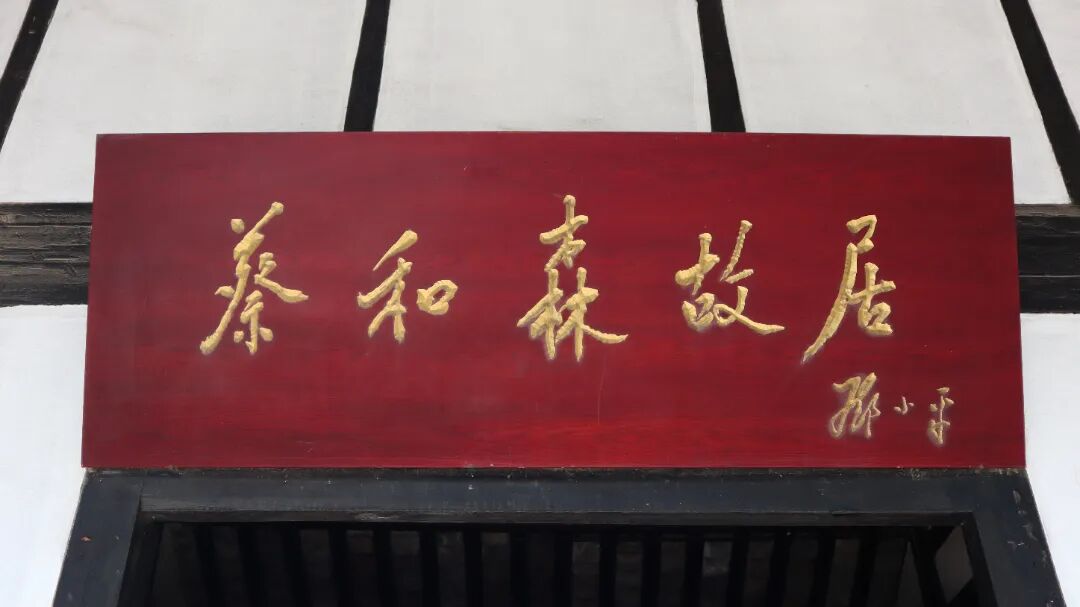 蔡和森故居
邓小平